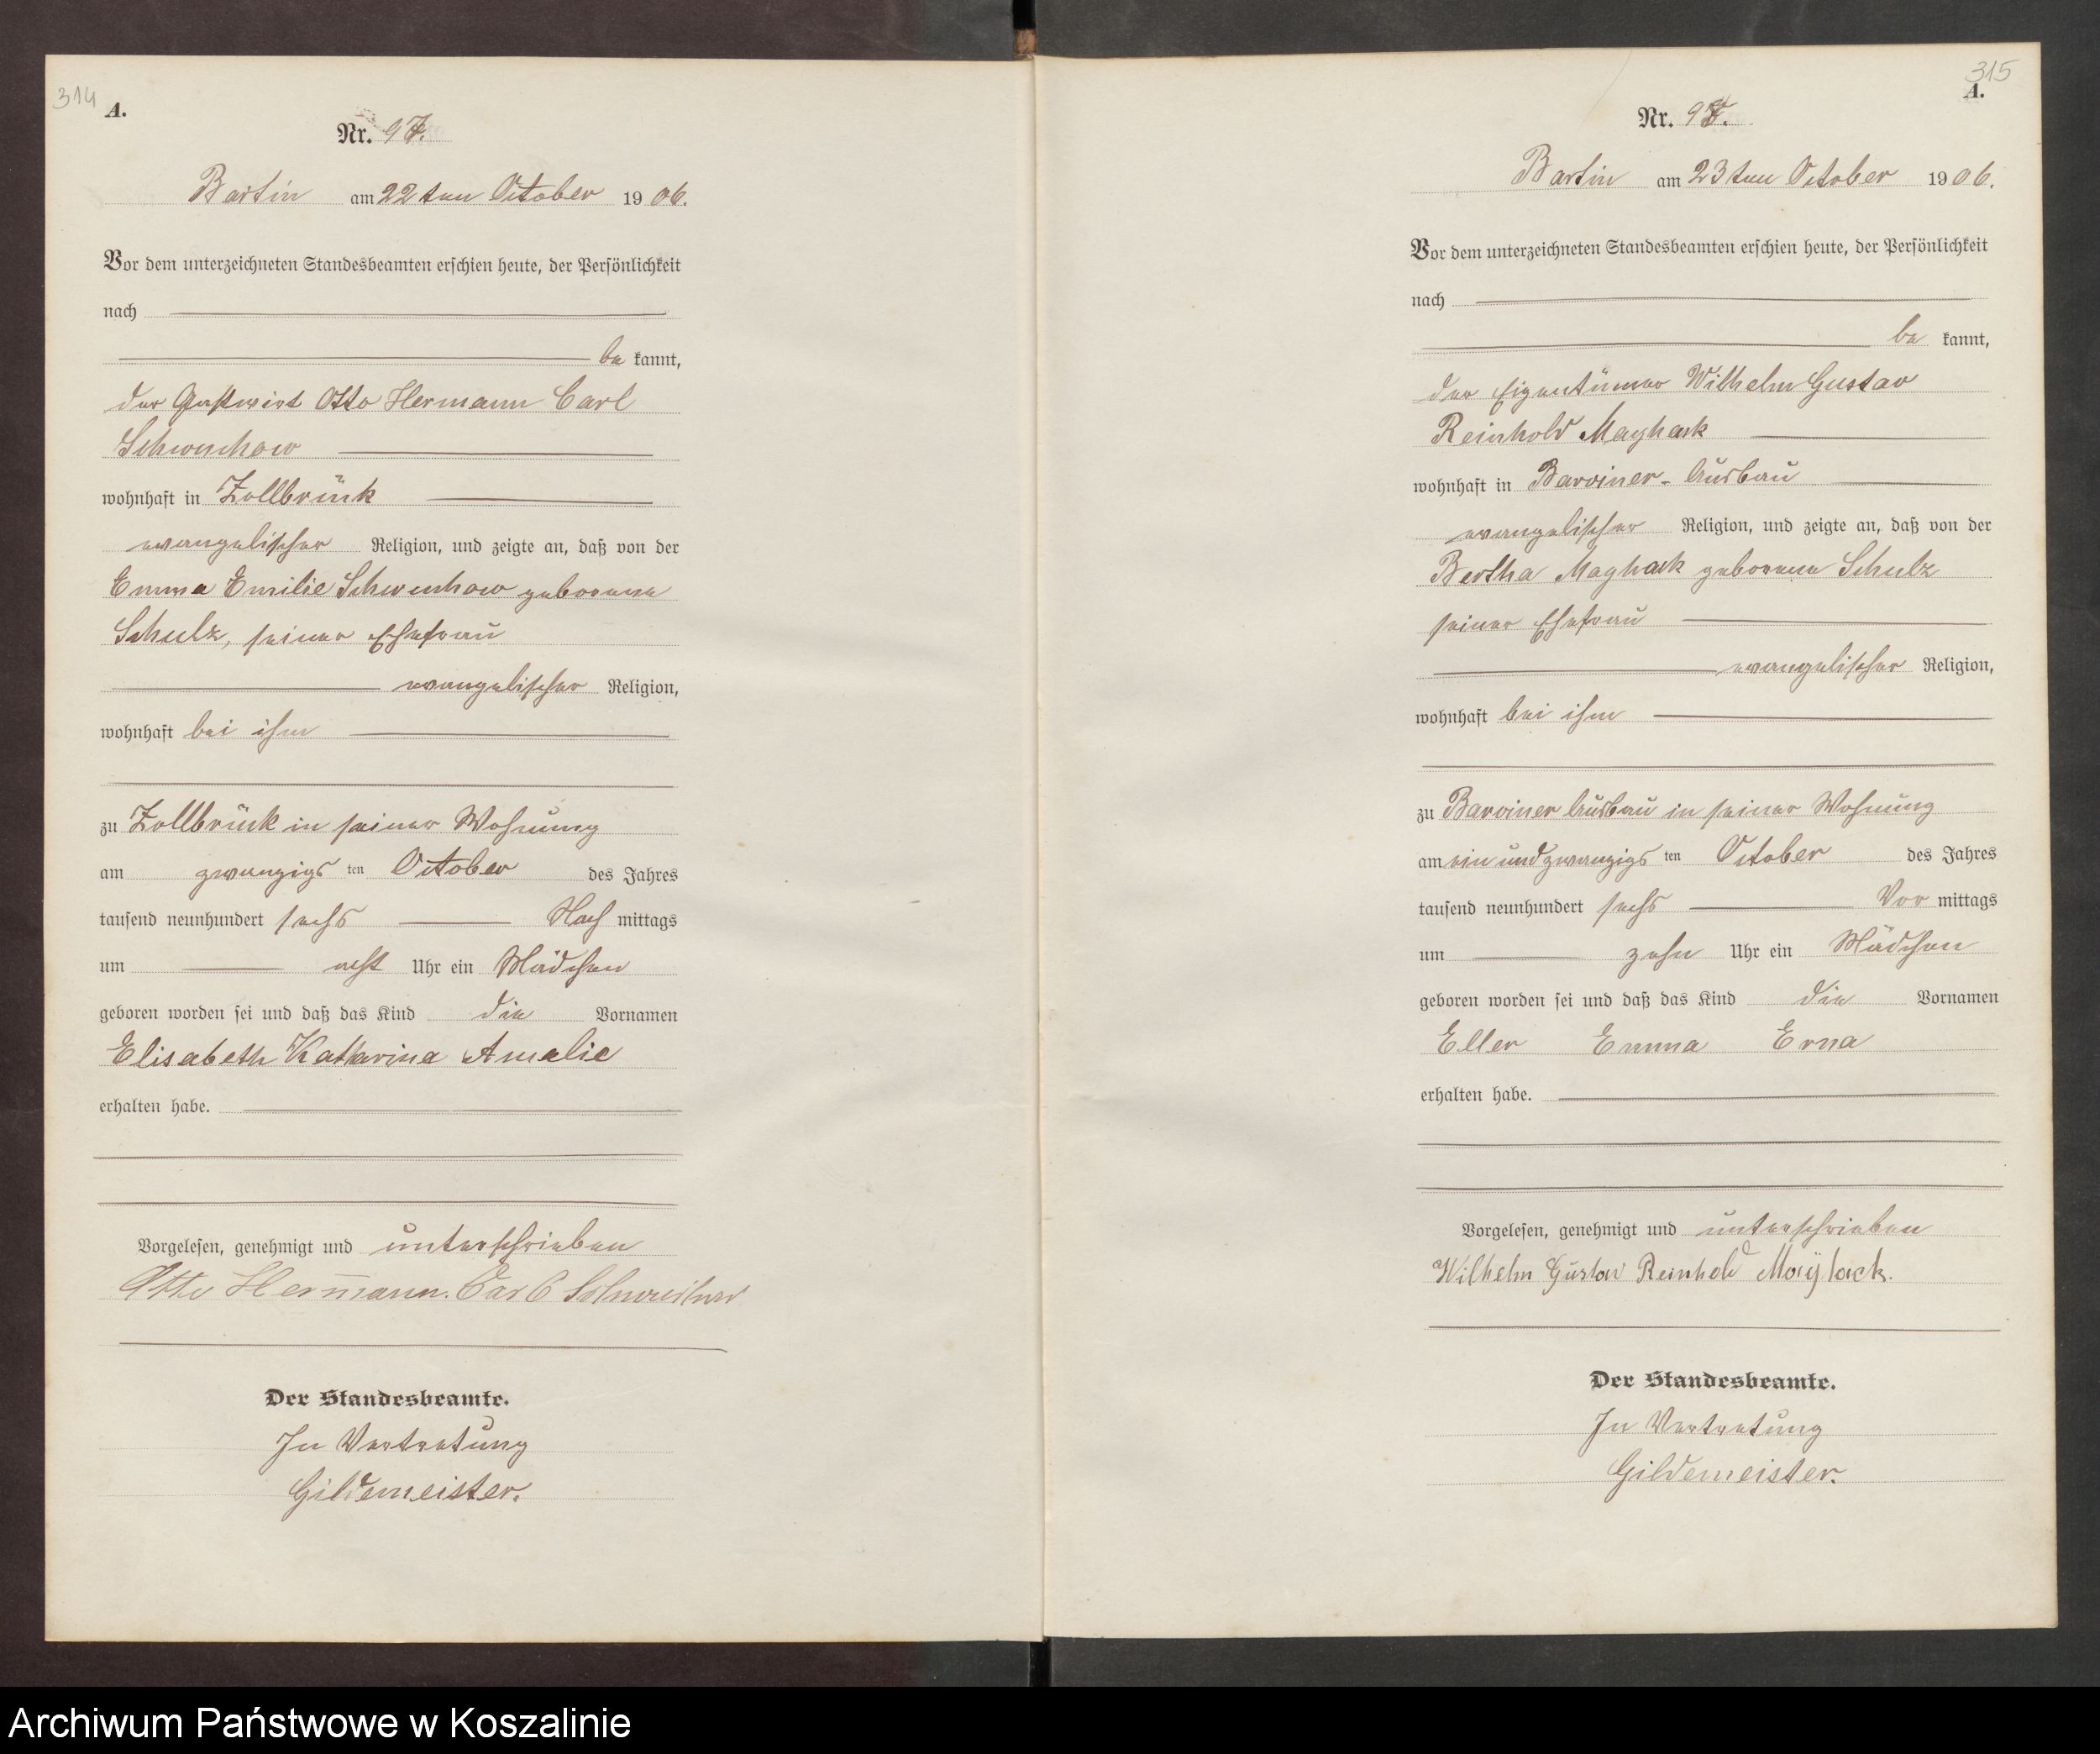 314
A.
Nr. 97.
Bartin am 22ten October 1906.
Vor dem unterzeichneten Standesbeamten erschien heute, der Persönlichkeit
nach
be kannt,
der Gastwirt Otto Hermann Carl
Schwuchow
wohnhaft in Zollbrück
evangelischer Religion, und zeigte an, daß von der
Emma Emilie Schwuchow geborene
Schulz, seiner Ehefrau
evangelischer Religion,
wohnhaft bei ihm
zu Zollbrück in seiner Wohnung
am zwanzigs ten October des Jahres
tausend neunhundert sechs Nach mittags
um acht Uhr ein Mädchen
geboren worden sei und daß das Kind die Vornamen
Elisabeth Katharina Amalie
erhalten habe.
Vorgelesen, genehmigt und unterschrieben
Otto Hermann Carl Schwuchow
Der Standesbeamte.
In Vertretung
Gildemeister.
315
A.
Nr.
Bartin am 23ten October 1906.
Vor dem unterzeichneten Standesbeamten erschien heute, der Persönlichkeit
nach
be kannt,
der Eigentümer Wilhelm Gustav
Reinhold
wohnhaft in Barviner-Ausbau
evangelischer Religion, und zeigte an, daß von der
Bertha geborene Schulz
seiner Ehefrau
evangelischer Religion,
wohnhaft bei ihm
zu Barviner Ausbau in seiner Wohnung
am ein und zwanzigs ten October des Jahres
tausend neunhundert sechs Vor mittags
um zehn Uhr ein Mädchen
geboren worden sei und daß das Kind die Vornamen
Eller Emma Erna
erhalten habe.
Vorgelesen, genehmigt und unterschrieben
Wilhelm Gustav Reinhold Maÿhack.
Der Standesbeamte.
In Vertretung
Gildemeister.
Archiwum Państwowe w Koszalinie